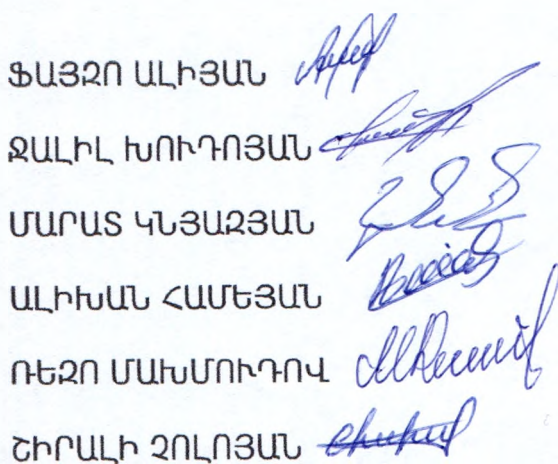 ՖԱՅԶՈ ԱԼԻՅԱՆ
ՋԱԼԻԼ ԽՈՒԴՈՅԱՆ
ՄԱՐԱՏ ԿՆՅԱԶՅԱՆ
ԱԼԻԽԱՆ ՀԱՄԵՅԱՆ
ՌԵԶՈ ՄԱԽՄՈՒԴՈՎ
ՇԻՐԱԼԻ ՉՈԼՈՅԱՆ